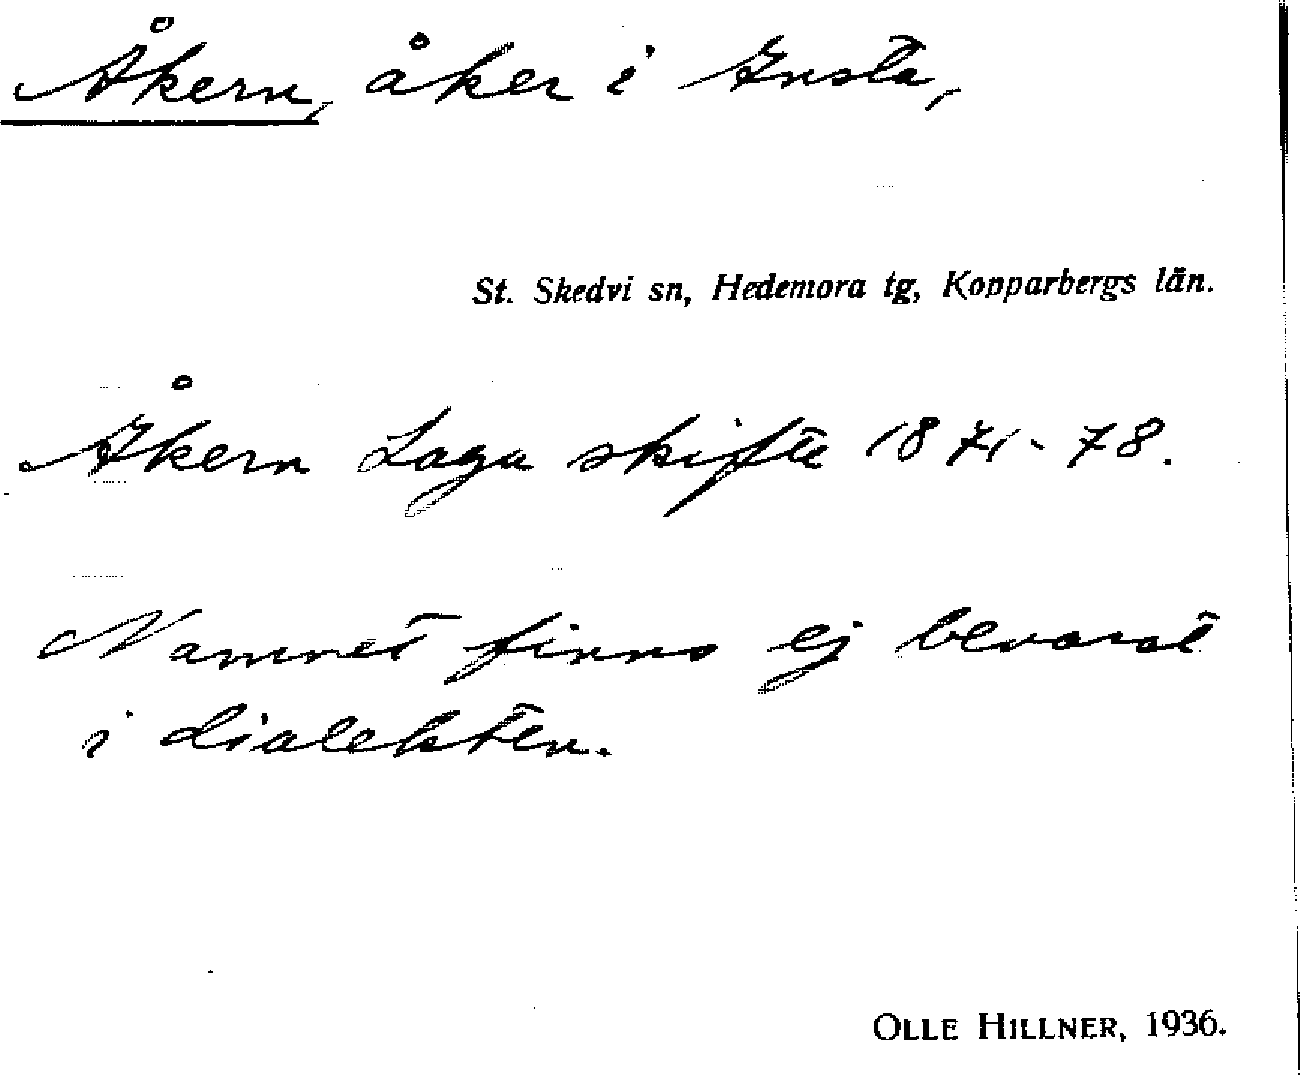 Åkern, åker i Knsta,
St. Skedvi sn, Hedemora tg, Kopparbergs län.
Åkern Laga skifte 1871-78.
Namnet finns ej bevarat
i dialekten.
OLLE HILLNER, 1936.